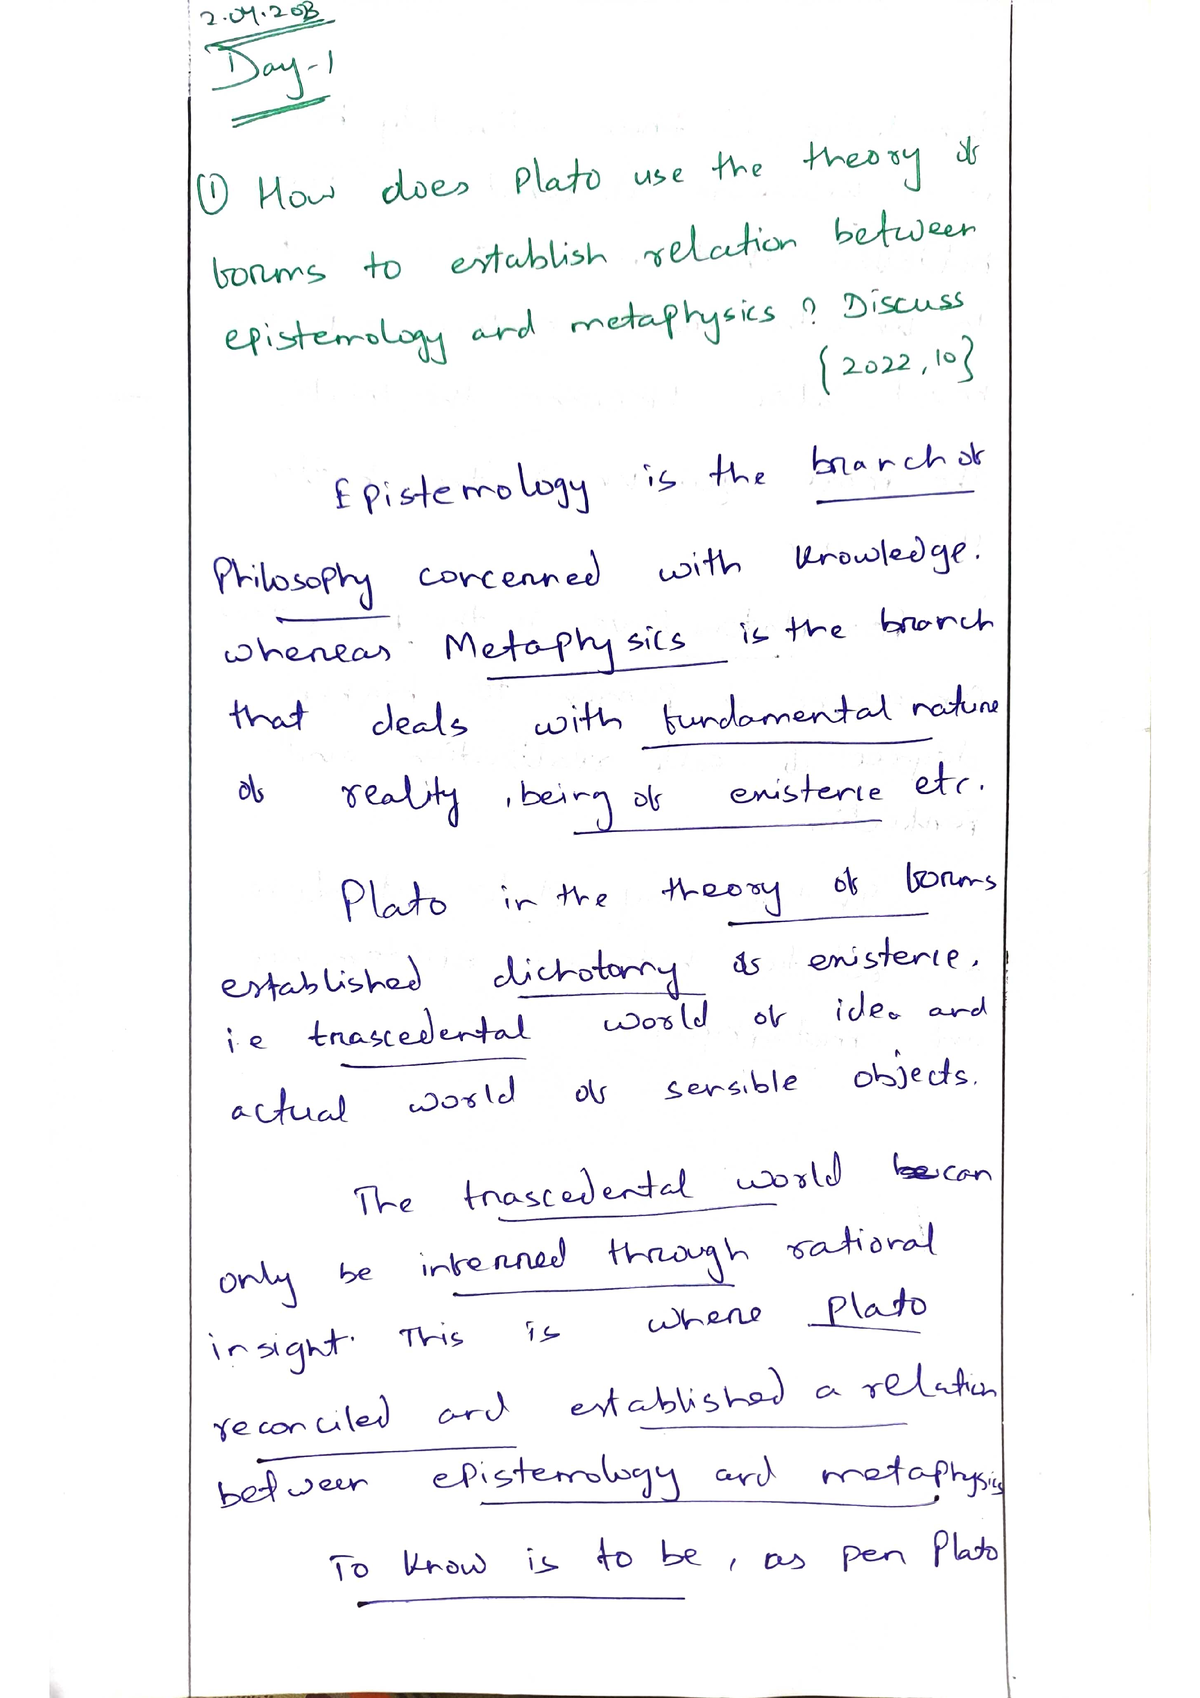 2.04.2023
Day-1
① How does Plato use the theory of
forms to establish relation between
epistemology and metaphysics? Discuss
{2022, 10}
Epistemology is the branch of
Philosophy concerned with knowledge.
whereas Metaphysics is the branch
that deals with fundamental nature
of reality, being of existence etc.
Plato in the theory of forms
established dichotomy of existence.
i.e trascedental world of idea and
actual world of sensible objects.
The trascedental world can
only be inferred through rational
insight. This is where Plato
reconciled and established a relation
between epistemology and metaphysics
To know is to be, as per Plato